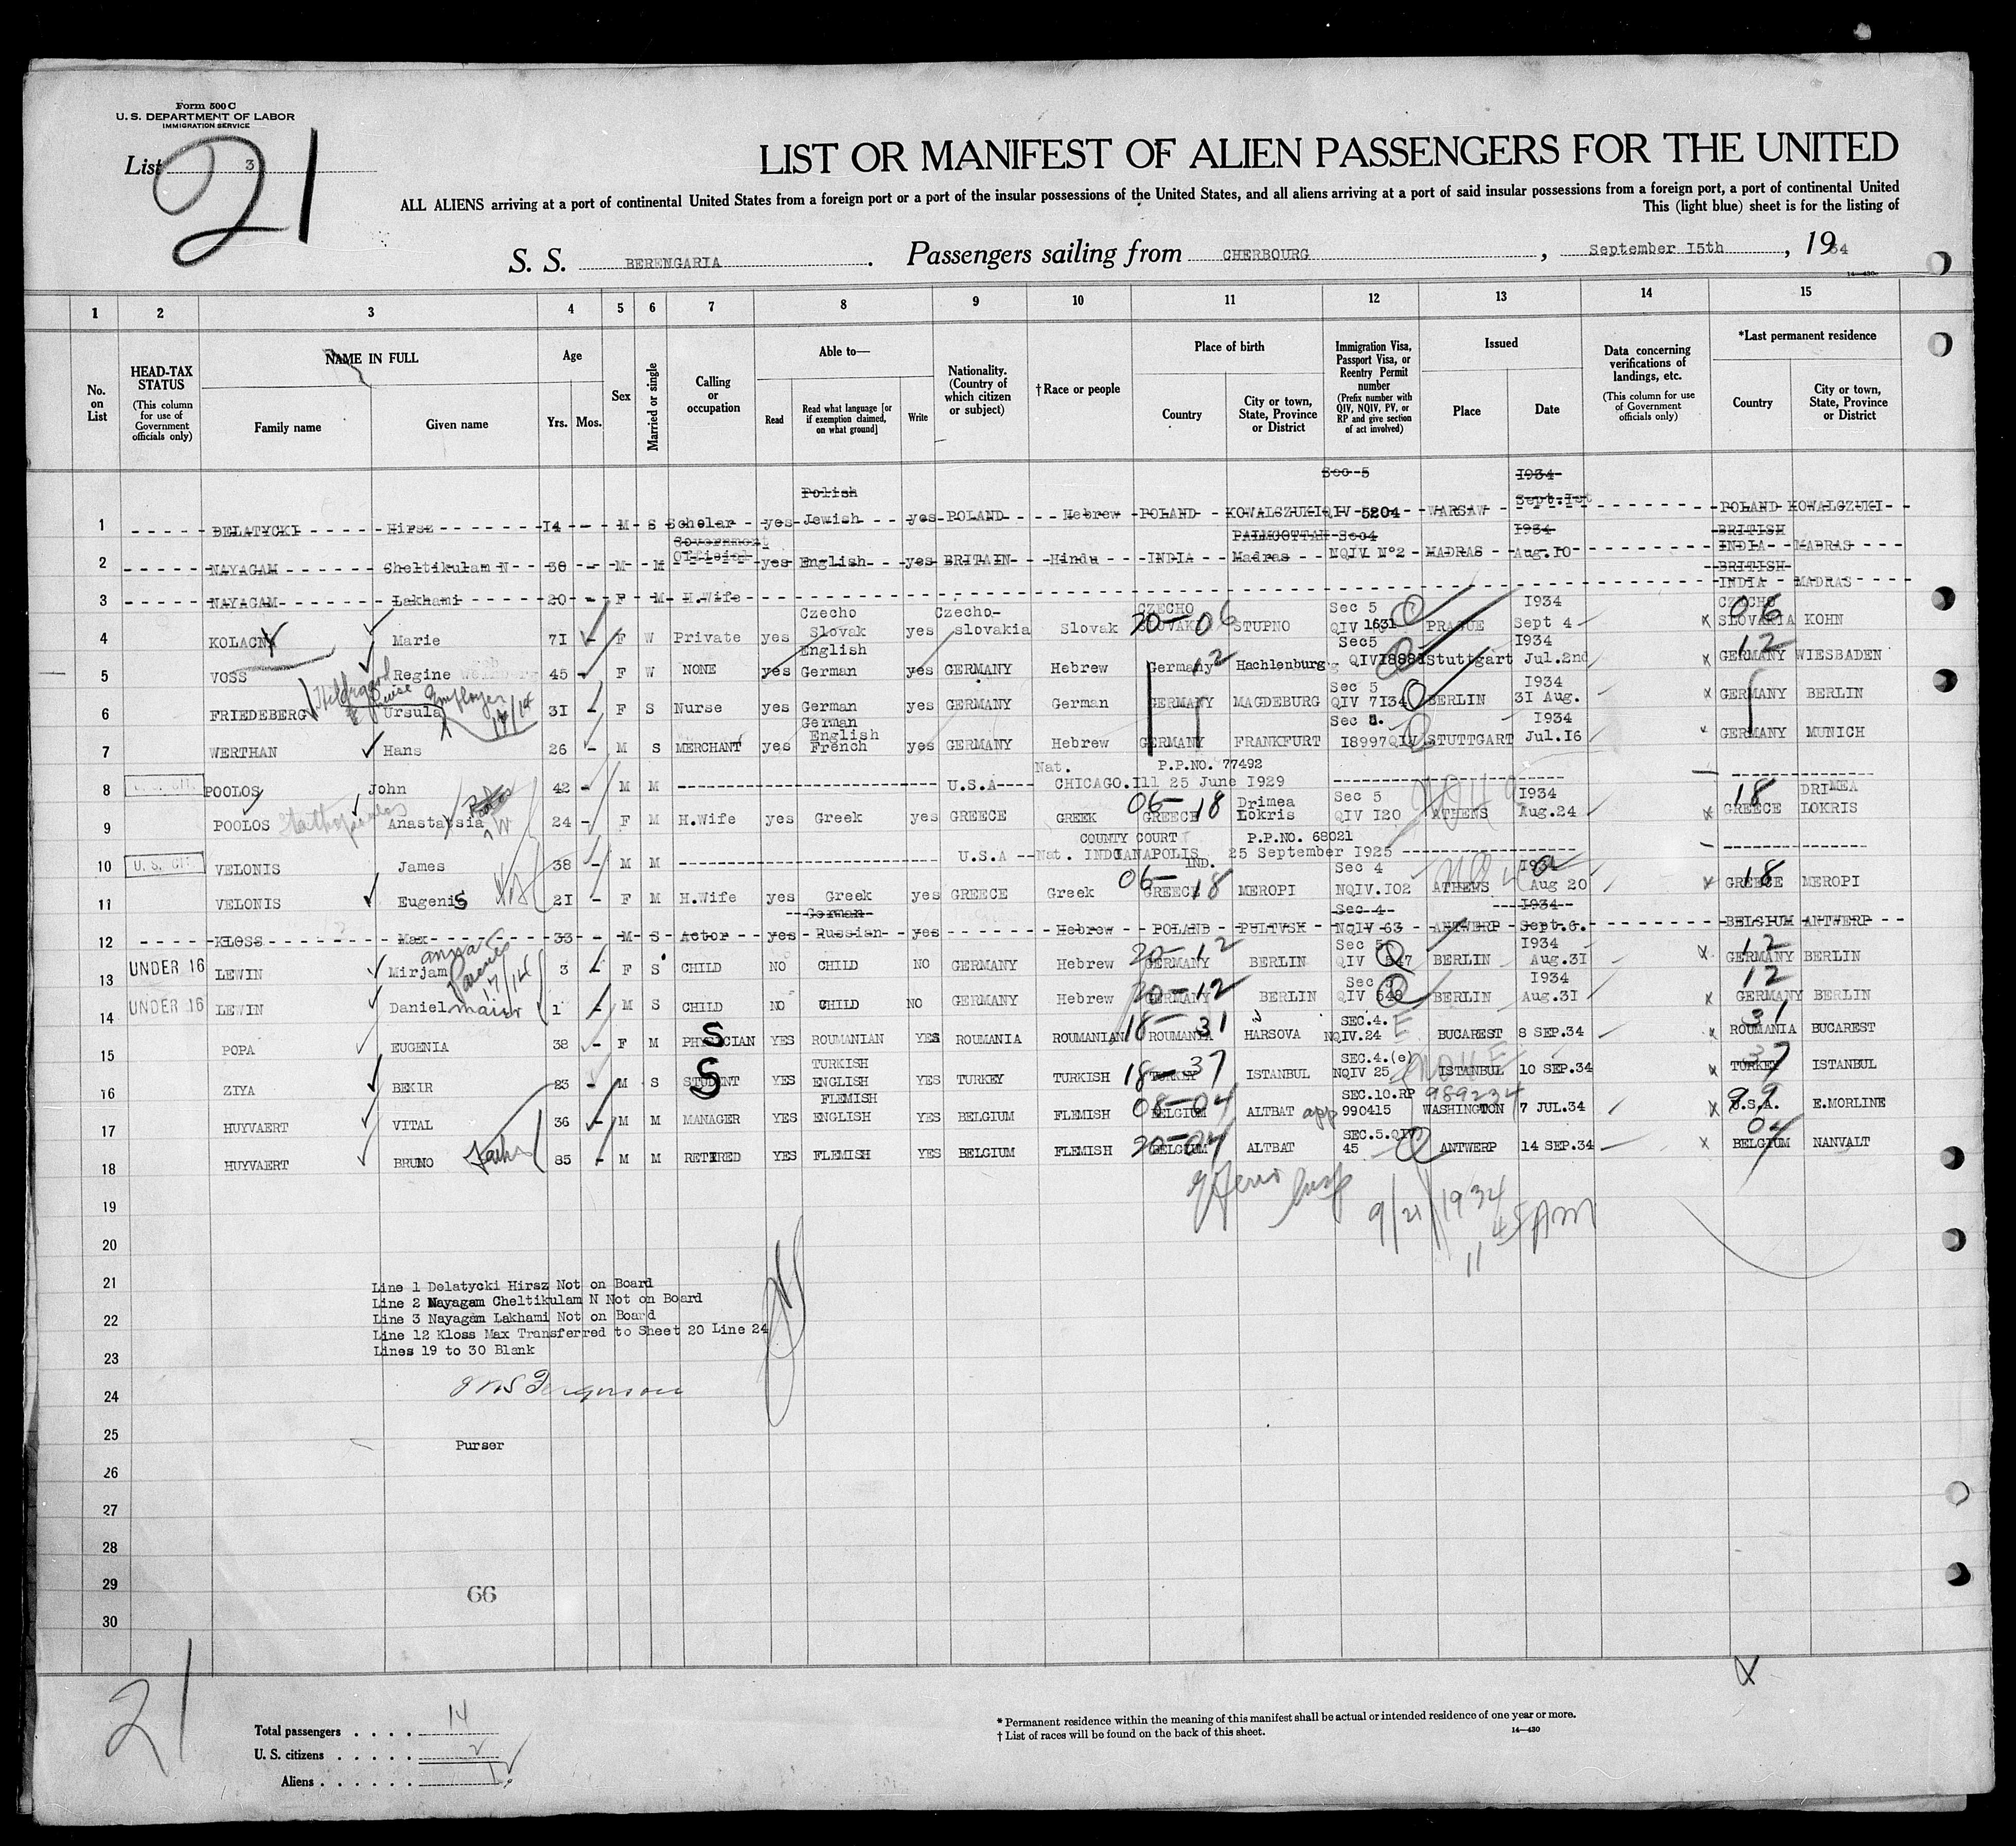 Form 500 C
U. S. DEPARTMENT OF LABOR
IMMIGRATION SERVICE
List 3
21
LIST OR MANIFEST OF ALIEN PASSENGERS FOR THE UNITED
ALL ALIENS arriving at a port of continental United States from a foreign port or a port of the insular possessions of the United States, and all aliens arriving at a port of said insular possessions from a foreign port, a port of continental United
This (light blue) sheet is for the listing of
S. S. BERENGARIA. Passengers sailing from CHERBOURG, September 15th, 1934
14—430
1 2 3 4 5 6 7 8 9 10 11 12 13 14 15
No. on List
HEAD-TAX STATUS (This column for use of Government officials only)
NAME IN FULL
Family name Given name
Age
Yrs. Mos.
Sex
Married or single
Calling or occupation
Able to—
Read Read what language [or if exemption claimed, on what ground] Write
Nationality. (Country of which citizen or subject)
† Race or people
Place of birth
Country City or town, State, Province or District
Immigration Visa, Passport Visa, or Reentry Permit number (Prefix number with QIV, NQIV, PV, or RP and give section of act involved)
Issued
Place Date
Data concerning verifications of landings, etc. (This column for use of Government officials only)
*Last permanent residence
Country City or town, State, Province or District
Sec 5 1934
Polish Sept.1st
1 BELATYCKI Hirsz 14 M S Scholar yes Jewish yes POLAND Hebrew POLAND KOWALSZUKI QIV 5204 WARSAW POLAND KOWALCZUKI
Government PALMCOTTAH Sec4 1934 BRITISH
2 NAYAGAM Cheltikulam N 30 M M Official yes English yes BRITAIN Hindu INDIA Madras NQIV Nº2 MADRAS Aug.10 INDIA MADRAS
BRITISH
3 NAYAGAM Lakhami 20 F M H.Wife INDIA MADRAS
Czecho Czecho- CZECHO Sec 5 1934 CZECHO
4 KOLACNY Marie 71 F W Private yes Slovak yes slovakia Slovak 20-06 SLOVAKIA STUPNO QIV 1631 PRAGUE Sept 4 06 SLOVAKIA KOHN
English Sec5 1934
5 VOSS Regine 45 F W NONE yes German yes GERMANY Hebrew Germany 12 Hachlenburg QIV18881 Stuttgart Jul.2nd 12 GERMANY WIESBADEN
Hildegard Luise Employer 17/14 Sec 5 1934
6 FRIEDEBERG Ursula 31 F S Nurse yes German yes GERMANY German GERMANY MAGDEBURG QIV 7134 BERLIN 31 Aug. GERMANY BERLIN
German English Sec 5. 1934
7 WERTHAN Hans 26 M S MERCHANT yes French yes GERMANY Hebrew GERMANY FRANKFURT 18997QIV STUTTGART Jul.16 GERMANY MUNICH
Nat. P.P.NO. 77492
8 POOLOS John 42 M M U.S.A CHICAGO.Ill 25 June 1929
Drimea Sec 5 1934 DRIMEA
9 POOLOS Anastassia 24 F M H.Wife yes Greek yes GREECE GREEK 06-18 GREECE Lokris QIV 120 ATHENS Aug.24 18 GREECE LOKRIS
COUNTY COURT P.P.NO. 68021
10 U. S. CIT. VELONIS James 38 M M U.S.A Nat. INDIANAPOLIS IND. 25 September 1925
Sec 4 1934
11 VELONIS EugeniS 21 F M H.Wife yes Greek yes GREECE Greek 06-18 GREECE MEROPI NQIV.102 ATHENS Aug 20 18 GREECE MEROPI
German Sec 4 1934
12 KLOSS Max 33 M S Actor yes Russian yes Hebrew POLAND PULTUSK NQIV 63 ANTWERP Sept.6. BELGIUM ANTWERP
anna Sec 5 1934
13 UNDER 16 LEWIN Mirjam 3 F S CHILD NO CHILD NO GERMANY Hebrew 20-12 GERMANY BERLIN QIV 547 BERLIN Aug.31 12 GERMANY BERLIN
Parents 17/14 Sec 5 1934
14 UNDER 16 LEWIN Daniel maier 1 M S CHILD NO CHILD NO GERMANY Hebrew 20-12 GERMANY BERLIN QIV 548 BERLIN Aug.31 12 GERMANY BERLIN
SEC.4.
15 POPA EUGENIA 38 F M PHYSICIAN S YES ROUMANIAN YES ROUMANIA ROUMANIAN 18-31 ROUMANIA HARSOVA NQIV.24 E BUCAREST 8 SEP.34 31 ROUMANIA BUCAREST
TURKISH SEC.4.(e)
16 ZIYA BEKIR 23 M S STUDENT S YES ENGLISH YES TURKEY TURKISH 18-37 TURKEY ISTANBUL NQIV 25 ISTANBUL 10 SEP.34 37 TURKEY ISTANBUL
FLEMISH SEC.10.RP 989234
17 HUYVAERT VITAL 36 M M MANAGER YES ENGLISH YES BELGIUM FLEMISH 08-04 BELGIUM ALTBAT app 990415 WASHINGTON 7 JUL.34 99 U.S.A. E.MORLINE
SEC.5.QIV
18 HUYVAERT BRUNO Father 85 M M RETIRED YES FLEMISH YES BELGIUM FLEMISH 20-04 BELGIUM ALTBAT 45 ANTWERP 14 SEP.34 04 BELGIUM NANVALT
19
9/21/1934
11 45 AM
20
21
Line 1 Delatycki Hirsz Not on Board
Line 2 Nayagam Cheltikulam N Not on Board
22
Line 3 Nayagam Lakhami Not on Board
Line 12 Kloss Max Transferred to Sheet 20 Line 24
23
Lines 19 to 30 Blank
24
25
Purser
26
27
28
29
66
30
21
Total passengers . . . . 14
U. S. citizens . . . . . 2
Aliens . . . . . .
* Permanent residence within the meaning of this manifest shall be actual or intended residence of one year or more.
† List of races will be found on the back of this sheet.
14—430